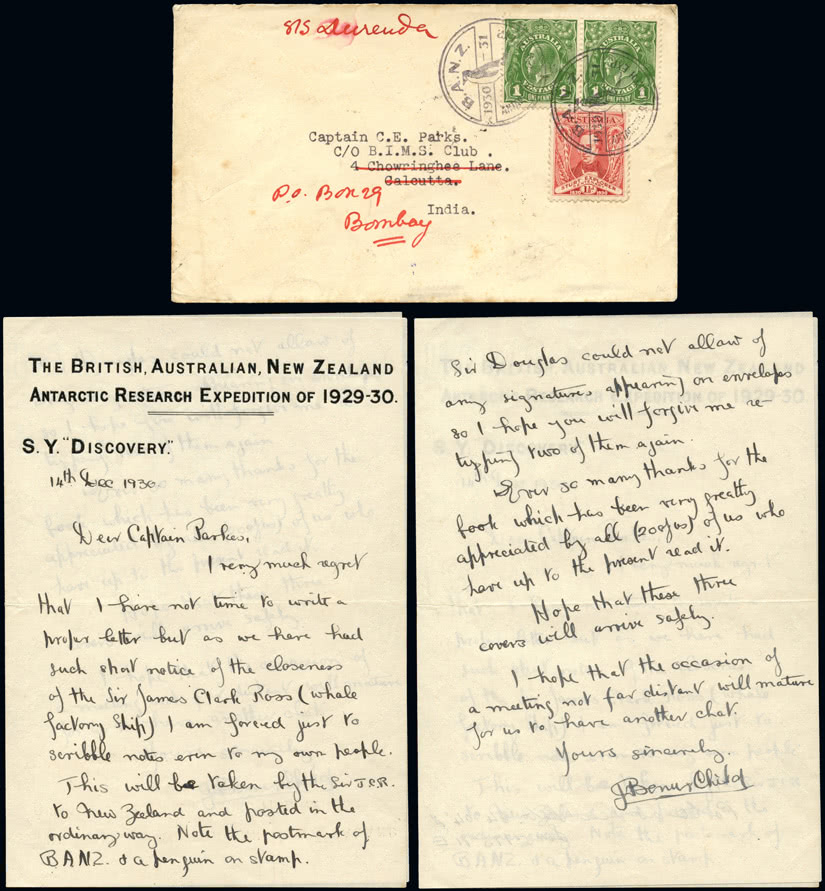 S/S Durenda
B.A.N.Z.
1930
-31
AUSTRALIA
POSTAGE
1 ONE PENNY 1
AUSTRALIA
POSTAGE
1 ONE PENNY 1
AUSTRALIA
STURT
Captain C.E. Parks.
C/O B.I.M.S. Club .
4 Chowringhee Lane.
Calcutta.
P.O. Box 29
India.
Bombay
THE BRITISH, AUSTRALIAN, NEW ZEALAND
ANTARCTIC RESEARCH EXPEDITION OF 1929-30.
S.Y. "DISCOVERY."
14th Dec 1930
Dear Captain Parkes,
I very much regret
that I have not time to write a
proper letter but as we have had
such short notice of the closeness
of the Sir James Clark Ross (whale
factory ship) I am forced just to
scribble notes even to my own people.
This will be taken by the Sir J.C.R.
to New Zealand and posted in the
ordinary way. Note the postmark of
BANZ. & a penguin on stamp.
Sir Douglas could not allow of
any signatures appearing on envelopes
so I hope you will forgive me re-
typing two of them again.
Ever so many thanks for the
book which has been very greatly
appreciated by all (20 of us) of us who
have up to the present read it.
Hope that these three
covers will arrive safely.
I hope that the occasion of
a meeting not far distant will mature
for us to have another chat.
Yours sincerely.
J Bonus Child